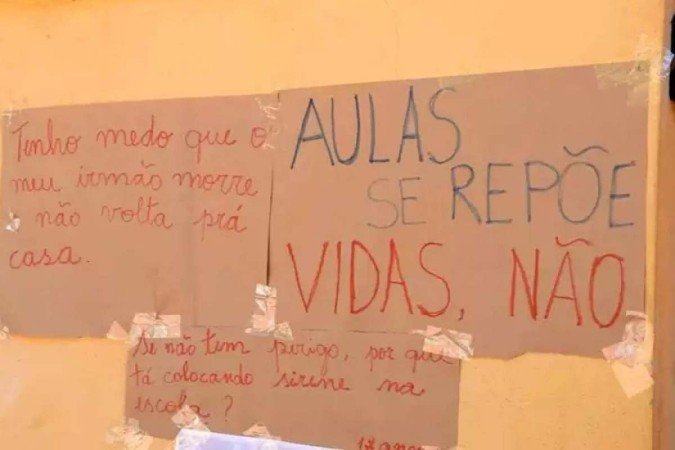 Tenho medo que o
meu irmão morre
não volta prá
casa.
AULAS
SE REPÕE
VIDAS, NÃO
Se não tem perigo, por que
tá colocando sirene na
escola?
12 anos